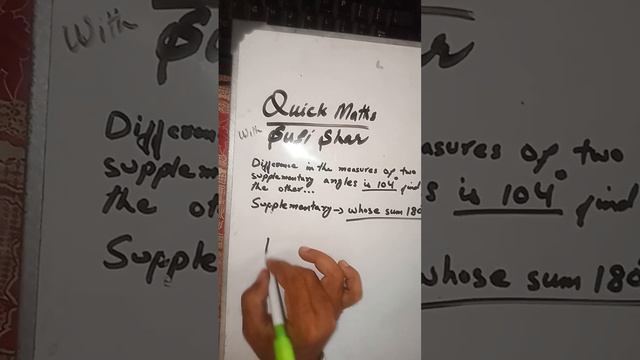 Quick Maths
With Suji Shar
Difference in the measures of two
supplementary angles is 104° find
the other...
Supplementary → whose sum 180